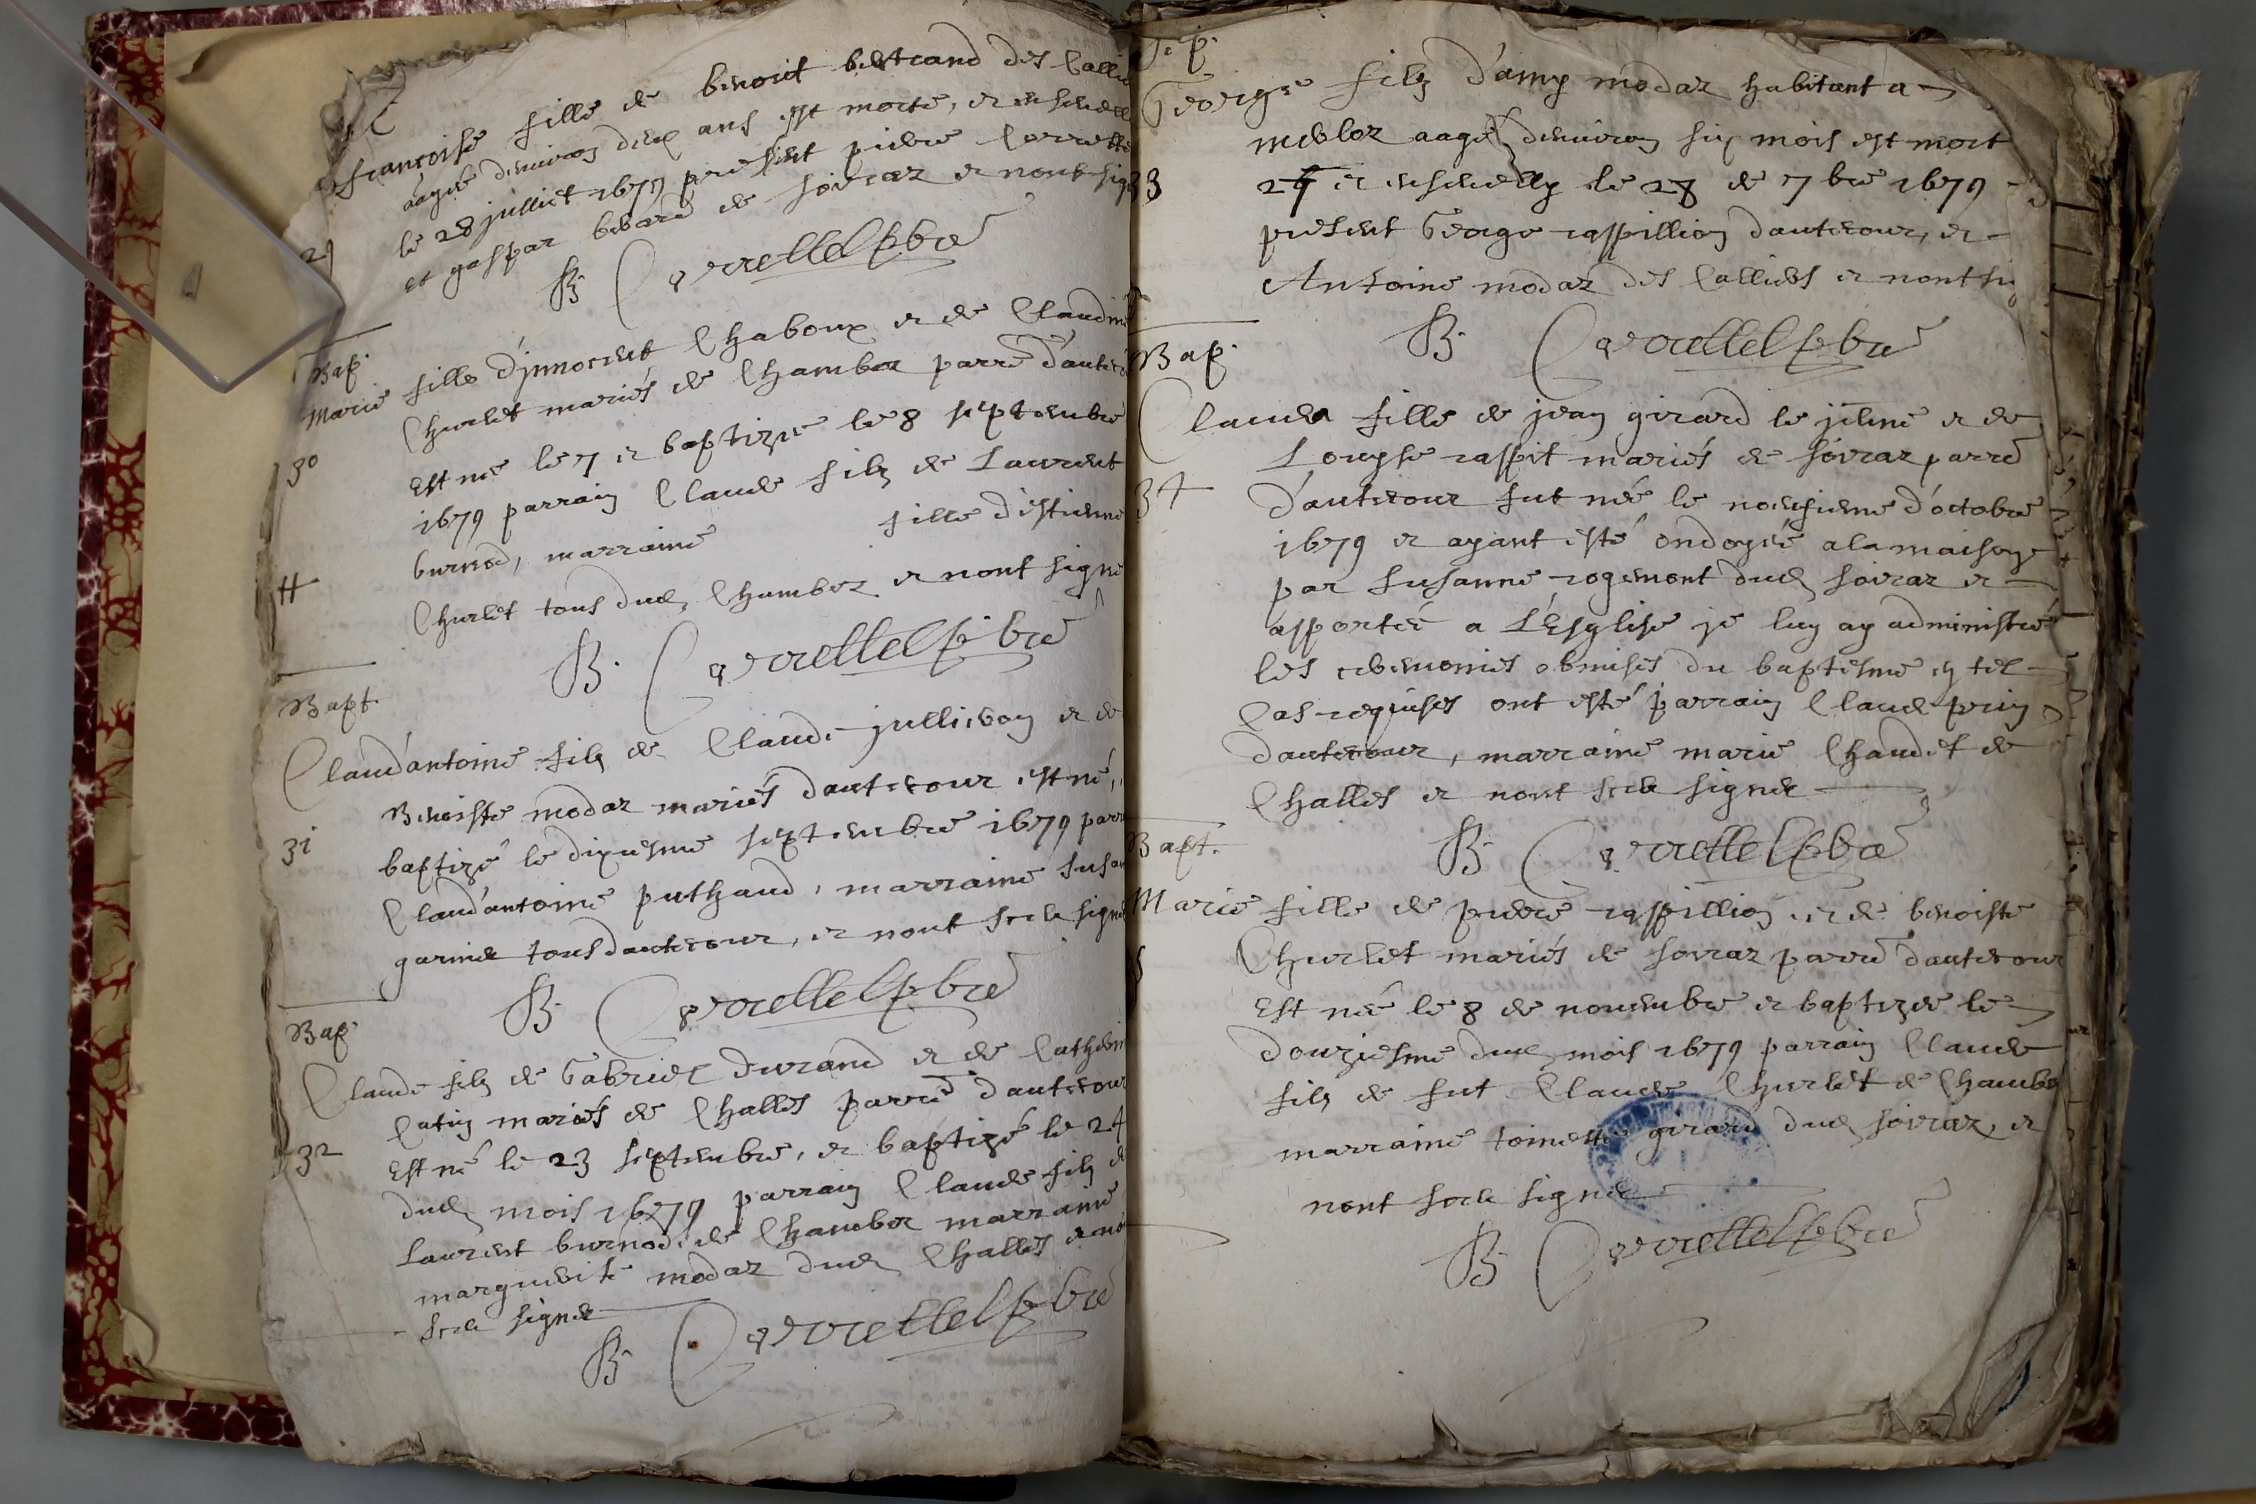 francoise fille de benoict bertrand des
aagée denviron deux ans est morte, et
le 28 juillet 1679 present pierre
29
et gaspar de soiraz et nont
B. Cerrettelfebre
Bap.
Marie fille d'innocent Chaboux et de Claudine
Churlet mariés de Chamber parr̃e
30
Est née le 7 et baptizée le 8 septembre
1679 parrain Claude filz de Laurent
burnod, marraine fille d'estienne
Churlet tous dud. Chamber et nont signé
B. Cerrettelfebre
Bapt.
Claud'antoine filz de Claude jullieron et de
Benoiste modaz mariés dautecour est né,
31
baptizé le dixiesme septembre 1679
Claud'antoine puthaud, marraine
garnier tous dautecour, et nont sceu
B. Cerrettelfebre
Bap.
Claude filz de Gabriel durand et de
Catin mariés de Challes parr̃e d'autecour
32
Est né le 23 septembre, et baptizé le 24
dud. mois 1679 parrain Claude filz
Laurent burnod de Chamber marraine
marguerite modaz dud. Challes
sceu signer
B. Cerrettelfebre
Sep.
George filz d'amy modaz habitant a
aagé denviron six mois est mort
33
et ensevelly le 28 de 7bre 1679
present George raspillion dautecour, et
Antoine modaz des et nont
B. Cerrettelfebre
Bap.
Clauda fille de jean girard le jeune et de
Louyse raspit mariés de soiraz parr̃e
34
d'autecour fut née le neufieme d'octobre
1679 et ayant esté ondoyée a la maison
par Susanne rogemont dud. soiraz et
apportée a L'Esglise je luy ay administré
les ceremonies obmises du baptesme en tel
Cas requises ont esté parrain Claude prin
dautecour, marraine marie Chaudet de
Challes et nont sceu signer
B. Cerrettelfebre
Bapt.
Marie fille de pierre raspillion et de benoiste
Churlet mariés de soiraz parr̃e dautecour
Est née le 8 de novembre et baptizée le
douziesme dud. mois 1679 parrain Claude
filz de fut Claude Churlet de Chamber
marraine toinette girard dud. soiraz, et
nont sceu signer
B. Cerrettelfebre